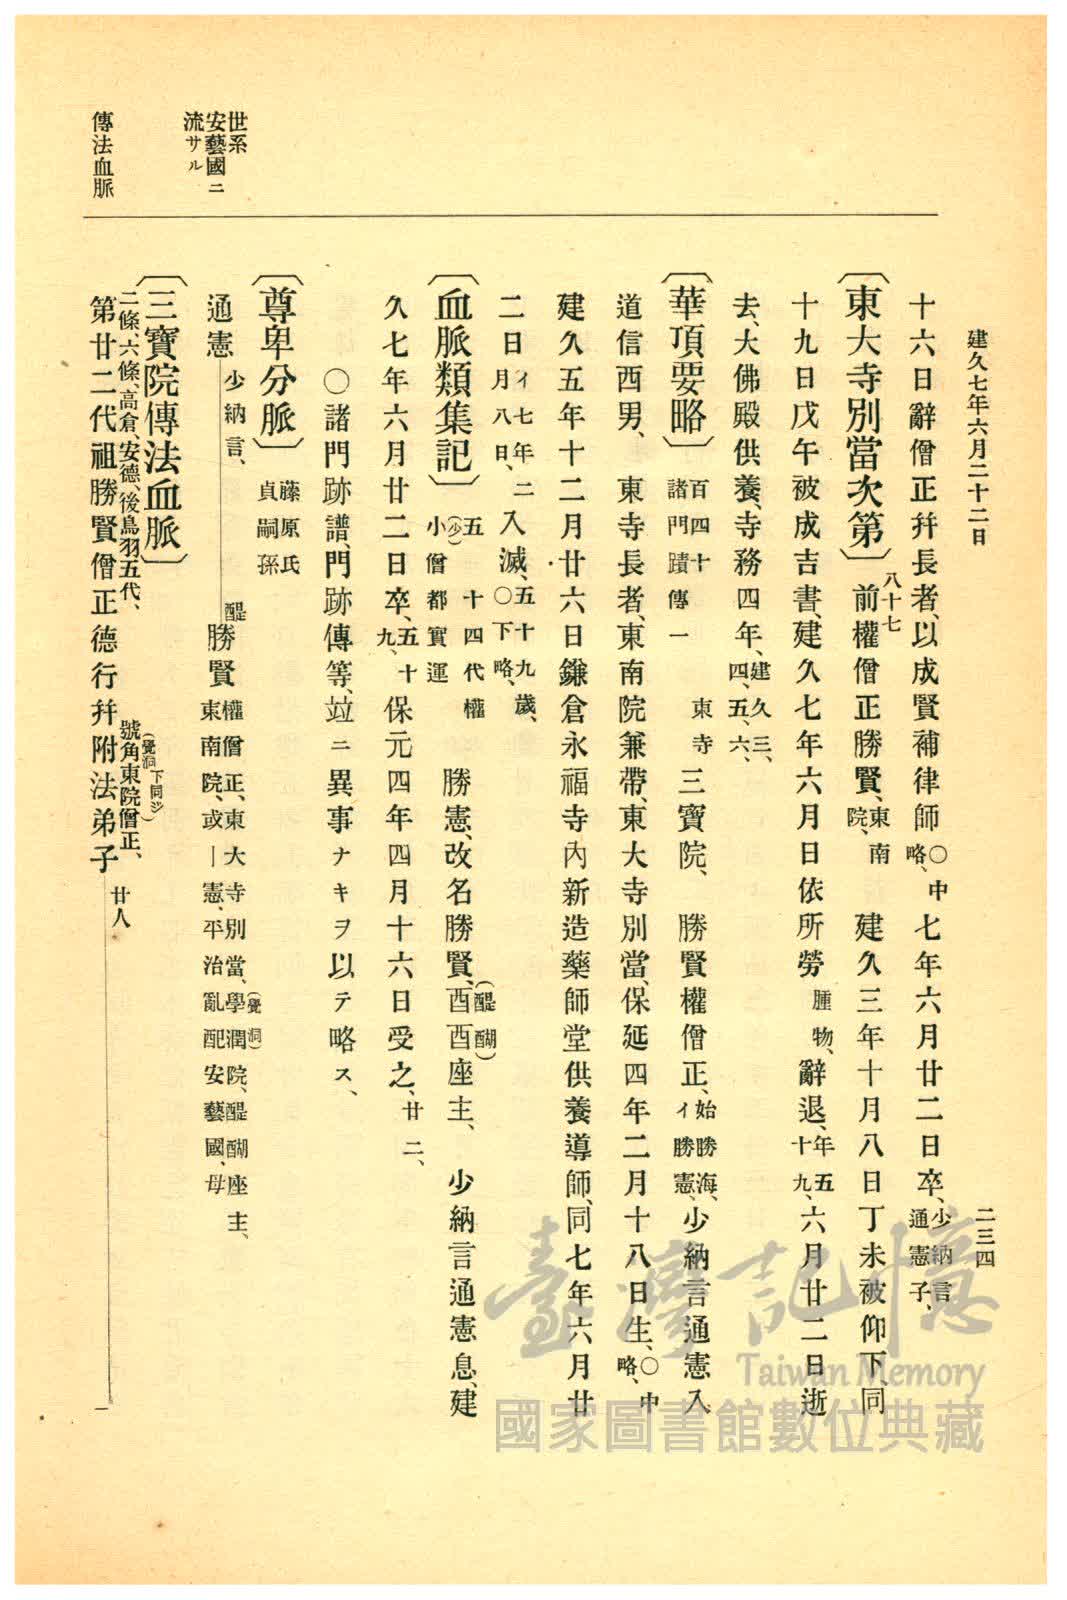 建久七年六月二十二日
二三四
十六日辭僧正幷長者、以成賢補律師〇中略、七年六月廿二日卒、少納言通憲子、
〔東大寺別當次第〕八十七前權僧正勝賢、東南院、建久三年十月八日丁未被仰下、同
十九日戊午被成吉書、建久七年六月日依所勞腫物、辭退、年五十九、六月廿二日逝
去、大佛殿供養、寺務四年、建久三、四、五、六、
〔華頂要略〕百四十諸門蹟傳一 東寺三寶院、勝賢權僧正、始勝海、イ勝憲、少納言通憲入
道信西男、東寺長者、東南院兼帶、東大寺別當、保延四年二月十八日生、〇中略、
建久五年十二月廿六日鎌倉永福寺內新造藥師堂供養導師、同七年六月廿
二日イ七年二月八日、入滅、五十九歲、〇下略、
〔血脈類集記〕五十四代權(少)小僧都實運 勝憲、改名勝賢、(醍醐)酉酉座主、少納言通憲息、建
久七年六月廿二日卒、五十九、保元四年四月十六日受之、廿二、
〇諸門跡譜、門跡傳等、竝ニ異事ナキヲ以テ略ス、
〔尊卑分脈〕藤原氏貞嗣孫
世系
安藝國ニ
流サル
通憲 少納言、 醍勝賢 權僧正、東大寺別當、學潤院、(覺洞)醍醐座主、東南院、或ー憲、平治亂配安藝國、母
〔三寶院傳法血脈〕
傳法血脈
二條、六條、高倉、安德、後鳥羽五代、
第廿二代祖勝賢僧正德行幷附法弟子 號角東院僧正、(覺洞下同ジ) 廿人 一
臺灣記憶
Taiwan Memory
國家圖書館數位典藏